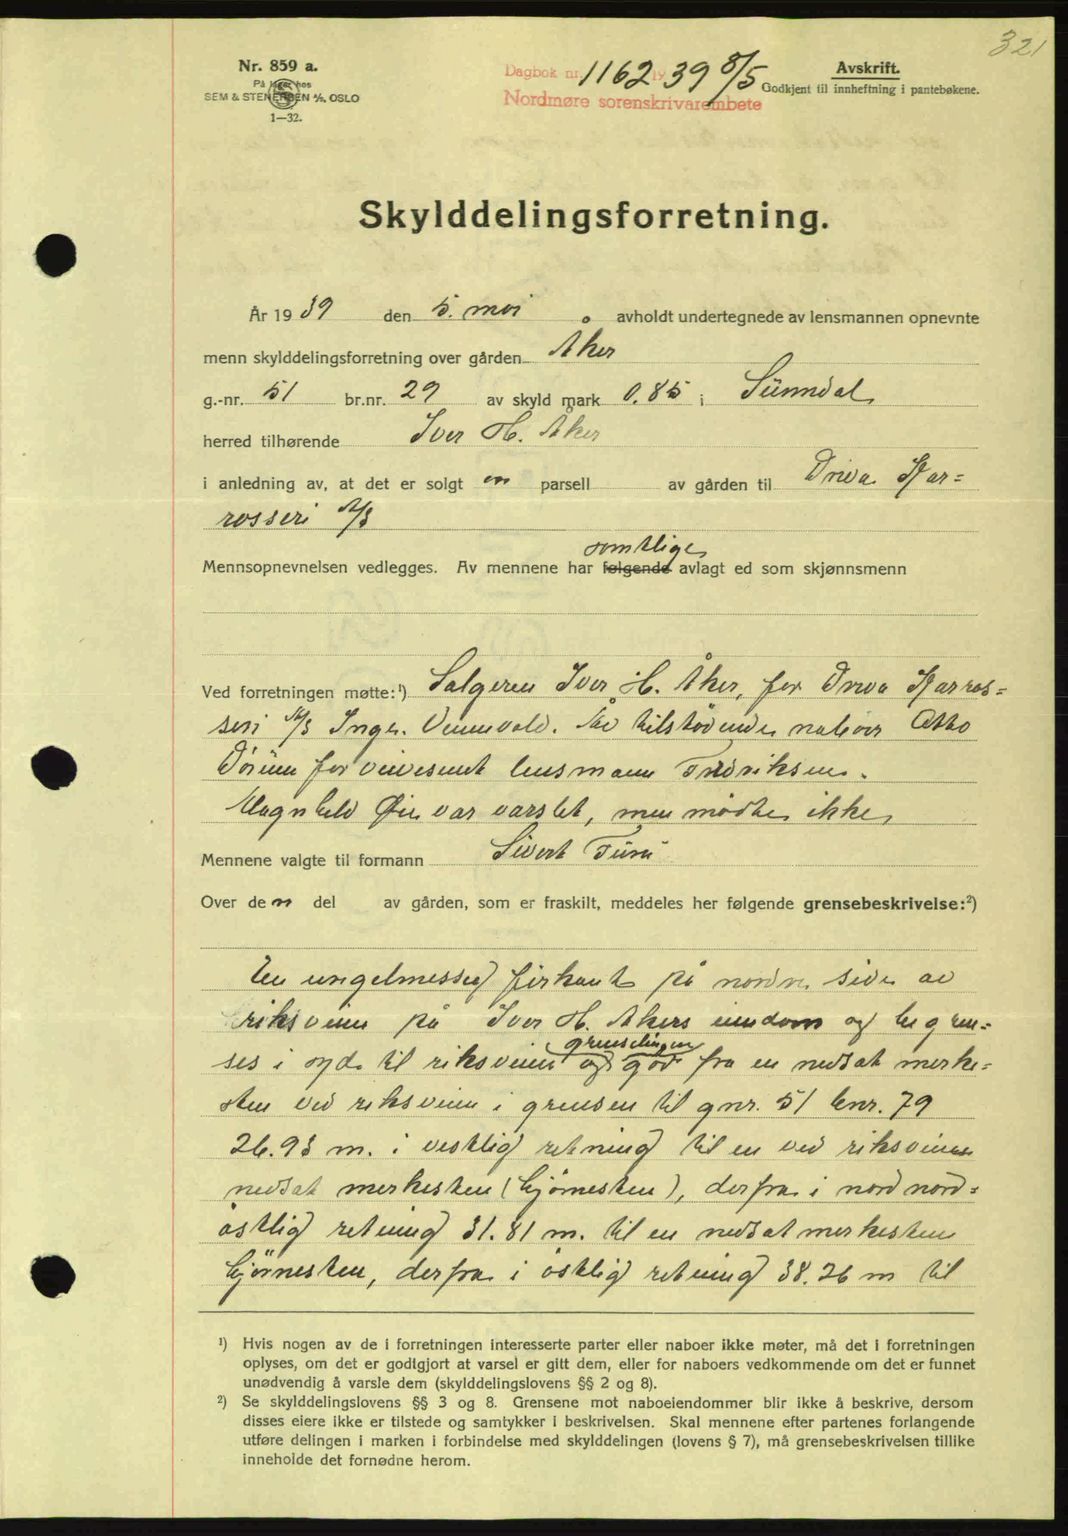 321
Nr. 859 a.
På lager hos
SEM & STENERSEN A/S, OSLO
1—32.
Dagbok nr. 1162 1939 8/5
Nordmøre sorenskrivarembete
Avskrift.
Godkjent til innheftning i pantebøkene.
Skylddelingsforretning.
År 1939 den 5. mai avholdt undertegnede av lensmannen opnevnte
menn skylddelingsforretning over gården Åker
g.-nr. 51 br.nr. 29 av skyld mark 0.85 i Sunndal
herred tilhørende Iver H. Åker
i anledning av, at det er solgt en parsell av gården til Driva Kar=
rosseri A/S
samtlige
Mennsopnevnelsen vedlegges. Av mennene har følgende avlagt ed som skjønnsmenn
Ved forretningen møtte:¹) Selgeren Iver H. Åker, for Driva Karros=
seri A/S Ingv. Vennevold. Av tilstøtende naboer Otto
Dørum for veivesenet lensmann Fredriksen.
Magnhild Øie var varslet, men møtte ikke
Mennene valgte til formann Sivert Furu
Over den del av gården, som er fraskilt, meddeles her følgende grensebeskrivelse:²)
En uregelmessig firkant på nordre side av
riksveien på Iver H. Åkers eiendom og begren=
grenselinjen
ses i syd til riksveien og går fra en nedsat merke=
sten ved riksveien i grensen til gnr. 51 bnr. 79
26.93 m. i vestlig retning til en ved riksveien
nedsat merkesten (hjørnesten), derfra i nord nord=
østlig retning 31.81 m. til en nedsat merkesten
hjørnesten, derfra i østlig retning 38.26 m til
¹) Hvis nogen av de i forretningen interesserte parter eller naboer ikke møter, må det i forretningen
oplyses, om det er godtgjort at varsel er gitt dem, eller for naboers vedkommende om det er funnet
unødvendig å varsle dem (skylddelingslovens §§ 2 og 8).
²) Se skylddelingslovens §§ 3 og 8. Grensene mot naboeiendommer blir ikke å beskrive, dersom
disses eiere ikke er tilstede og samtykker i beskrivelsen. Skal mennene efter partenes forlangende
utføre delingen i marken i forbindelse med skylddelingen (lovens § 7), må grensebeskrivelsen tillike
inneholde det fornødne herom.